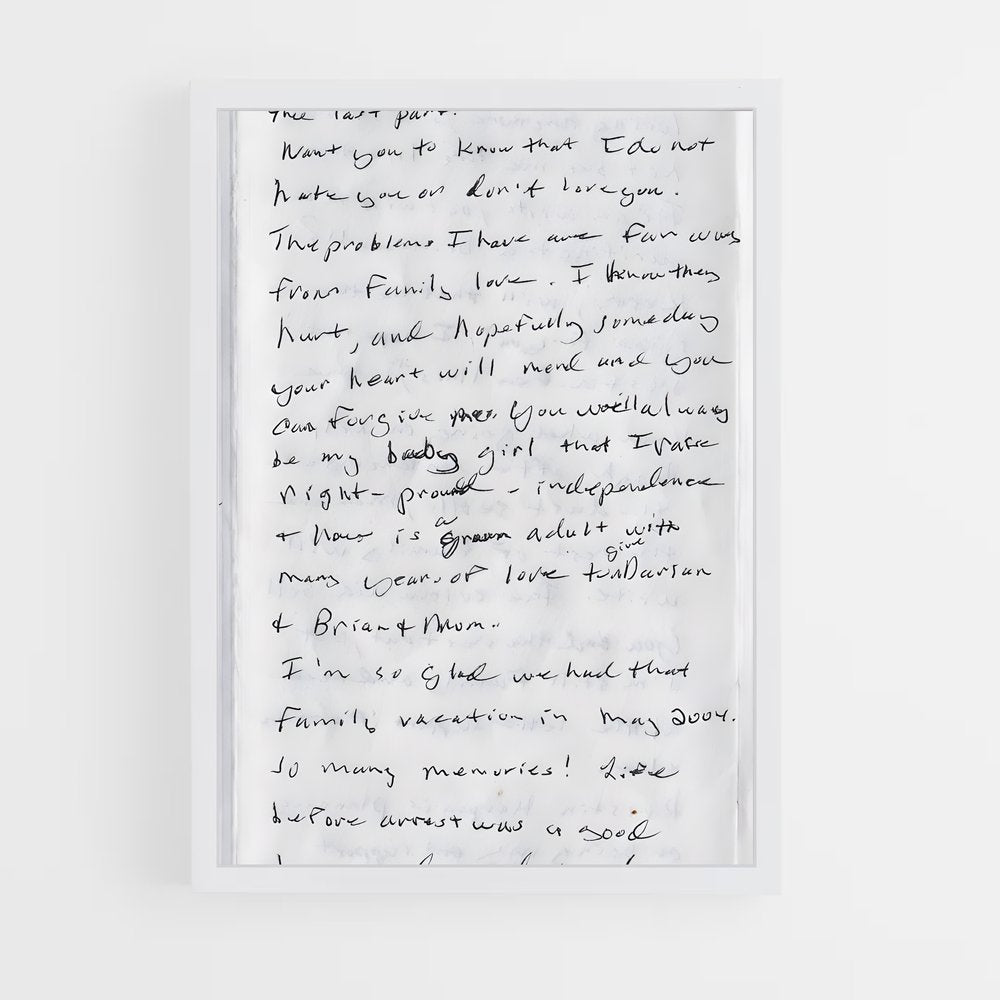 the last part.
Want you to know that I do not
hate you or don't love you.
The problems I have are far away
from family love. I know they
hurt, and hopefully someday
your heart will mend and you
can forgive me. You will always
be my baby girl that I raise
right - proud - independence
+ now is a grown adult with
many years of love to give Darian
+ Brian + Mom..
I'm so glad we had that
family vacation in May 2004.
So many memories! Life
before arrest was a good